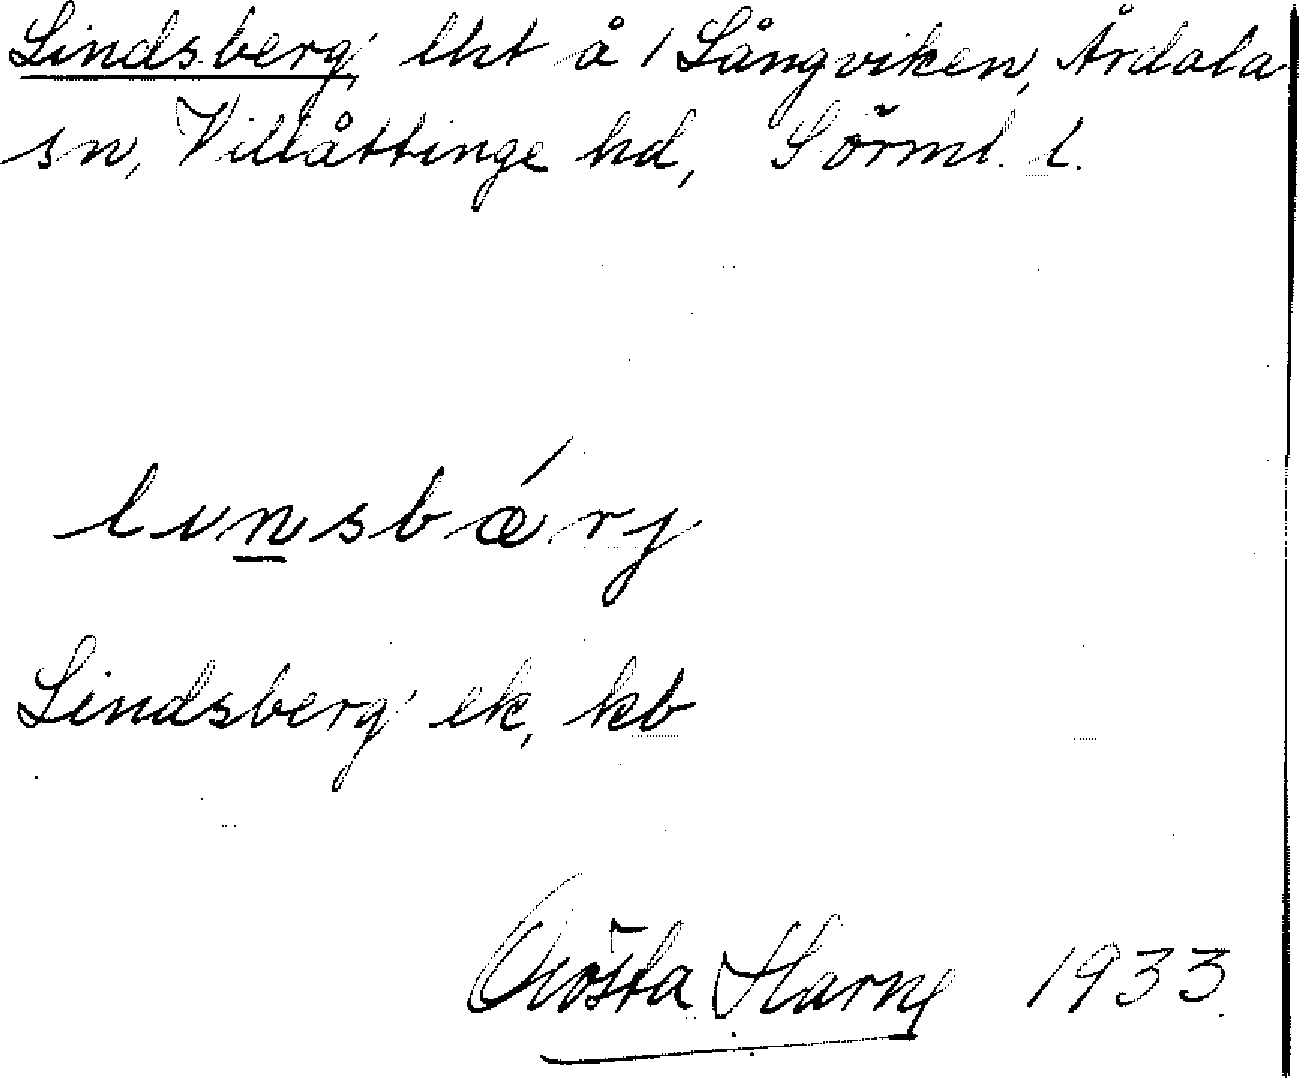 Lindsberg lht å 1 Långviken, Årdala
sn, Villåttinge hd, Sörml. l.
lınsbǽrj
Lindsberg ek, kb
Gösta Harne 1933